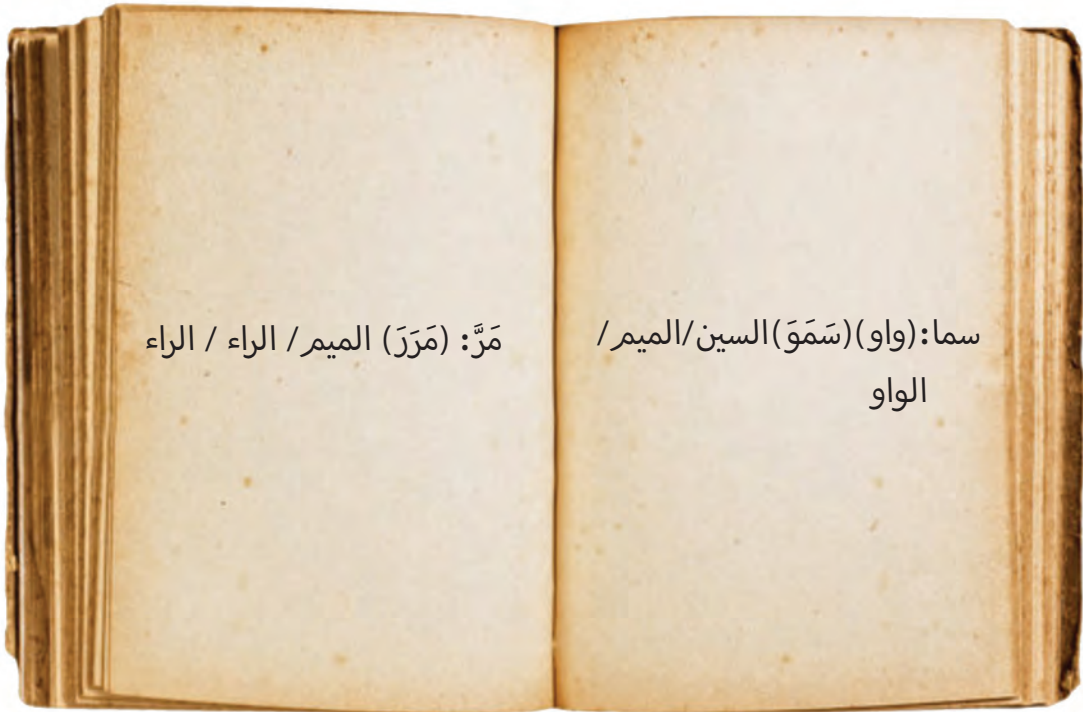 سما:(واو)(سَمَوَ)السين/الميم/
الواو
مَرَّ: (مَرَرَ) الميم/ الراء / الراء